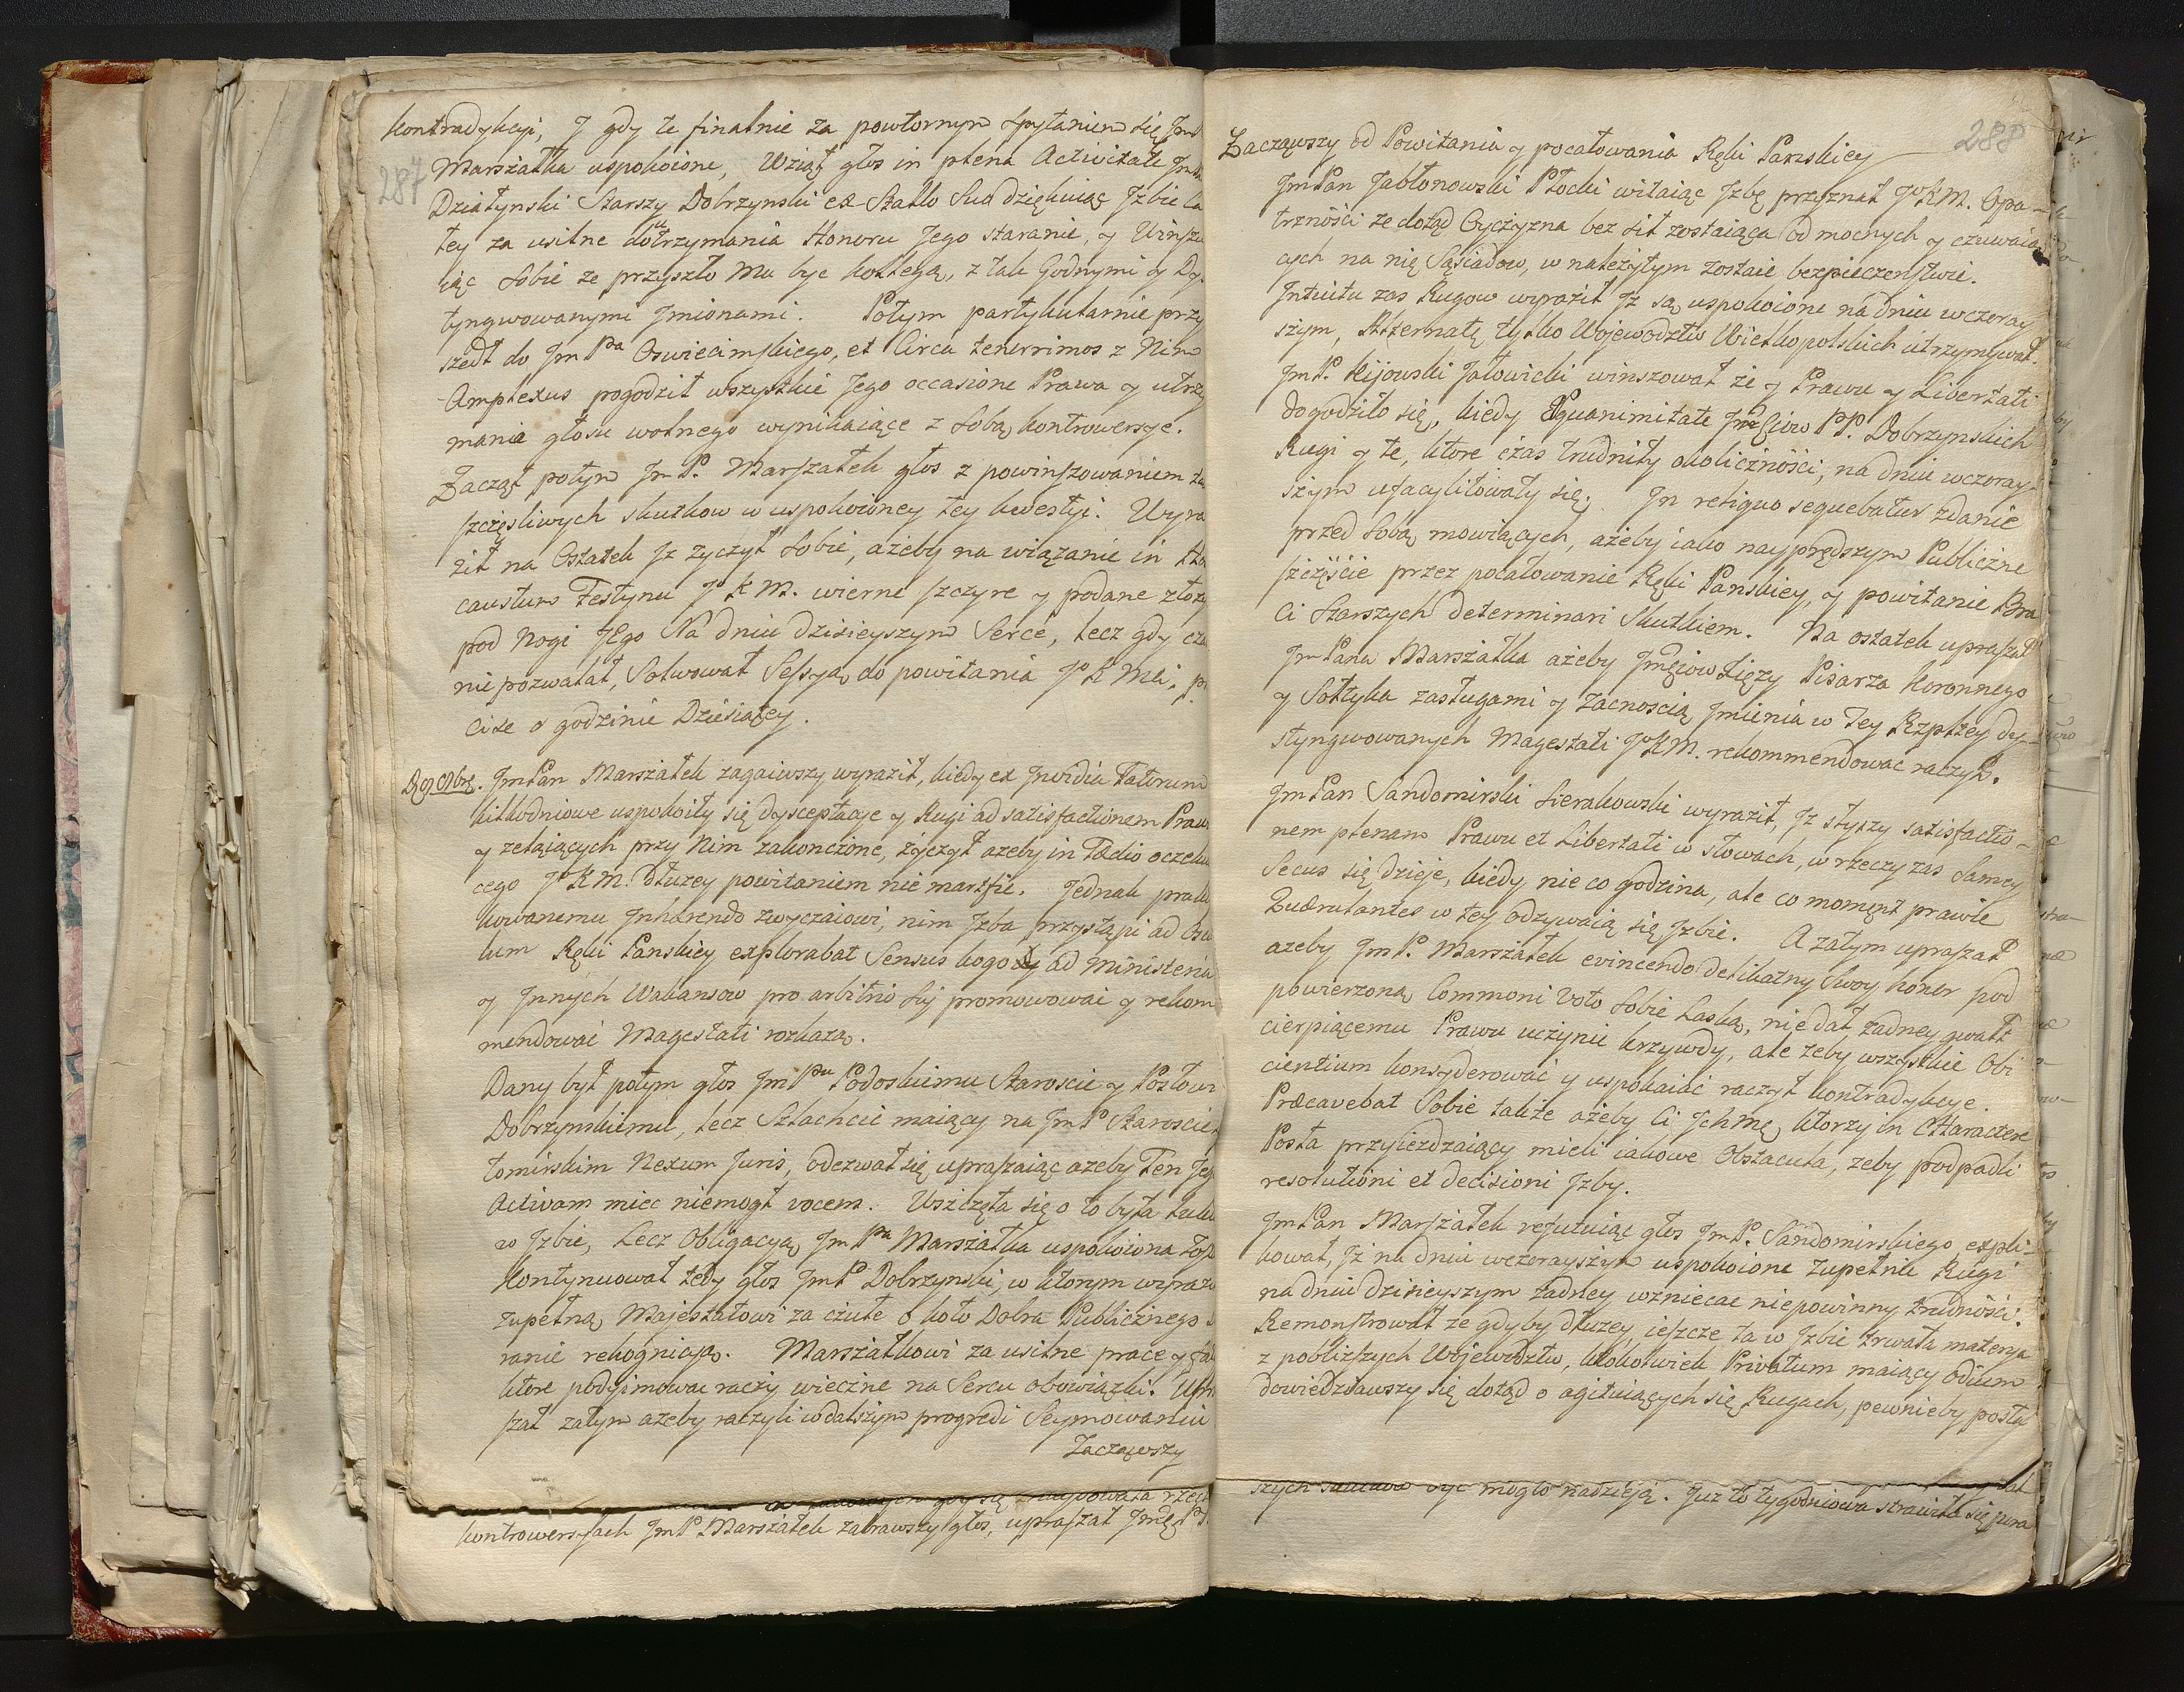 287
kontradykcyi, J gdy te finalnie za powtornym spytaniem się Jm
Marszałka uspokoione, Wziął głos in plena Activitate Jm
Działynski Starszy Dobrzynski ex Stallo Suo dziękuiąc Jzbie ca
tey za usilne dotrzymania Honoru Jego staranie, y Winszu
iąc sobie ze przyszło mu byc kollegą, z tak Godnymi y Dy-
tyngwowanymi Jmionami. Potym partykularnie przy
szedł do Jm Pa Oswiecimskiego, et Circa tenerrimos z Nim
Amplexus pogodził wszystkie Jego occasione Prawa y utrzy
mania głosu wolnego wynikaiące z sobą kontrowersye.
Zaczął potym Jm P. Marszałek głos z powinszowaniem ta
szczęsliwych skutkow w uspokoioney tey kwestyi. Wyra
ził na Ostatek Jz zyczył sobie, ażeby na wiązanie in Ho
caustum Festynu J K M. wierne szczyre y podane złozy
pod Nogi JEgo Na dniu dzisieyszym Serce, lecz gdy cza
nie pozwalał, Solwował Sessyą do powitania J K Mci,
cise o godzinie Dziesiątey.
Jm Pan Marszałek zagaiwszy wyraził, kiedy ex Jnvidia Fatorum
kilkodniowe uspokoiły się dysceptacye y Rugi ad satisfactionem Praw
y zelaiących przy Nim zakonczone, życzył azeby in Tædio oczeku
cego J K M. dłuzey powitaniem nie martwic. Jednak prakty
kowanemu Jnhærendo zwyczaiowi, nim Jzba przystąpi ad Oscu
lum Ręki Panskiey explorabat Sensus kogo ad Ministeria
y Jnnych Wakansow pro arbitrio sui promowowac y rekom
mendować Magestati rozkazą.
Dany był potym głos Jm Pu Podoskiemu Staroscie y Posłowi
Dobrzynskiemu, lecz Szlachcic maiący na Jm P Staroscie
tomirskim Nexum Juris, odezwał się upraszaiąc azeby Ten Jego
Activam miec niemogł vocem. Wszczęła się o to była
w Jzbie, Lecz Obligacyą Jm Pa Marszałka uspokoiona
Kontynuował tedy głos Jm P Dobrzynski, w ktorym wyraził
zupełną Majestatowi za czułe o koło Dobra Publicznego
ranie rekognicyą. Marszałkowi za usilne prace y
ktore podeimowac raczy wieczne na Sercu obowiązki. Upra
szał zatym azeby raczyli w dalszym progredi Seymowaniu
Zacząwszy
kontrowersyach Jm P Marszałek zabrawszy głos, upraszał Jmę P.
288
Zacząwszy od Powitania y pocałowania Ręki Panskiey
Jm Pan Jabłonowski Płocki witaiąc Jzbę przyznał J K M. Opa-
trznosci ze dotąd Oyczyzna bez sił zostaiąca od mocnych y czuwaią
cych na nię Sąsiadow, w nalezytym zostaie bezpieczenstwie.
Jntuitu zas Rugow wyraził Jz są uspokoione na dniu wczoray
szym, Alternatę tylko Wojewodztw Wielkopolskich utrzymywał.
Jm P. Kijowski Jałowicki winszował ze y Prawu y Libertati
dogodziło się, kiedy Equanimitate Jmciow PP. Dobrzynskich
Rugi y te, ktore czas trudniły okoliczności, na dniu wczoray-
szym ufacylitowały się. Jn reliquo sequebatur zdanie
przed sobą mowiących, ażeby iako nayprędszym Publiczne
szczęście przez pocałowanie Ręki Panskiey, y powitanie Bra
ci Starszych determinari Skutkiem. Na ostatek upraszał
Jm Pana Marszałka ażeby Jmciow Xięzy Pisarza Koronnego
y Sołtyka zasługami y Zacnoscią Jmienia w Tey Rzpltey dy-
styngwowanych Magestati J K M. rekommendowac raczył.
Jm Pan Sandomirski Sierakowski wyraził, Jz słyszy satisfactio-
nem plenam Prawu et Libertati w słowach, w rzeczy zas samey
Secus się dzieje, kiedy nie co godzina, ale co moment prawie
Quærulantes w tey odzywaią się Jzbie. A zatym upraszał
azeby Jm P. Marszałek evincendo delikatny Swoy honor pod
powierzoną Commoni Voto sobie Laską, nie dał zadney gwałt
cierpiącemu Prawu uczynic krzywdy, ale zeby wszystkie Obi
cientium konsyderować y uspokaiać raczył kontradykcye.
Præcavebat Sobie także ażeby Ci Jchmę, ktorzy in Charactere
Posła przyiezdzaiący mieli iakowe Obstacula, zeby podpadli
resolutioni et decisioni Jzby.
Jm Pan Marszałek refutuiąc głos Jm P. Sandomirskiego expli-
kował, Jz na dniu wczorayszym uspokoione Zupełnie Rugi
na dniu dzisieyszym żadney wzniecac niepowinny trudności.
Remonstrował ze gdyby dłuzey ieszcze ta w Jzbie trwała materya
z poblizszych Wojewodztw, ktokolwiek Privatum maiący odium
dowiedziawszy się dotąd o agituiących się Rugach, pewnieby posłu
szych byc mogło nadzieją. Juz to tygodniowa strawiła się pora